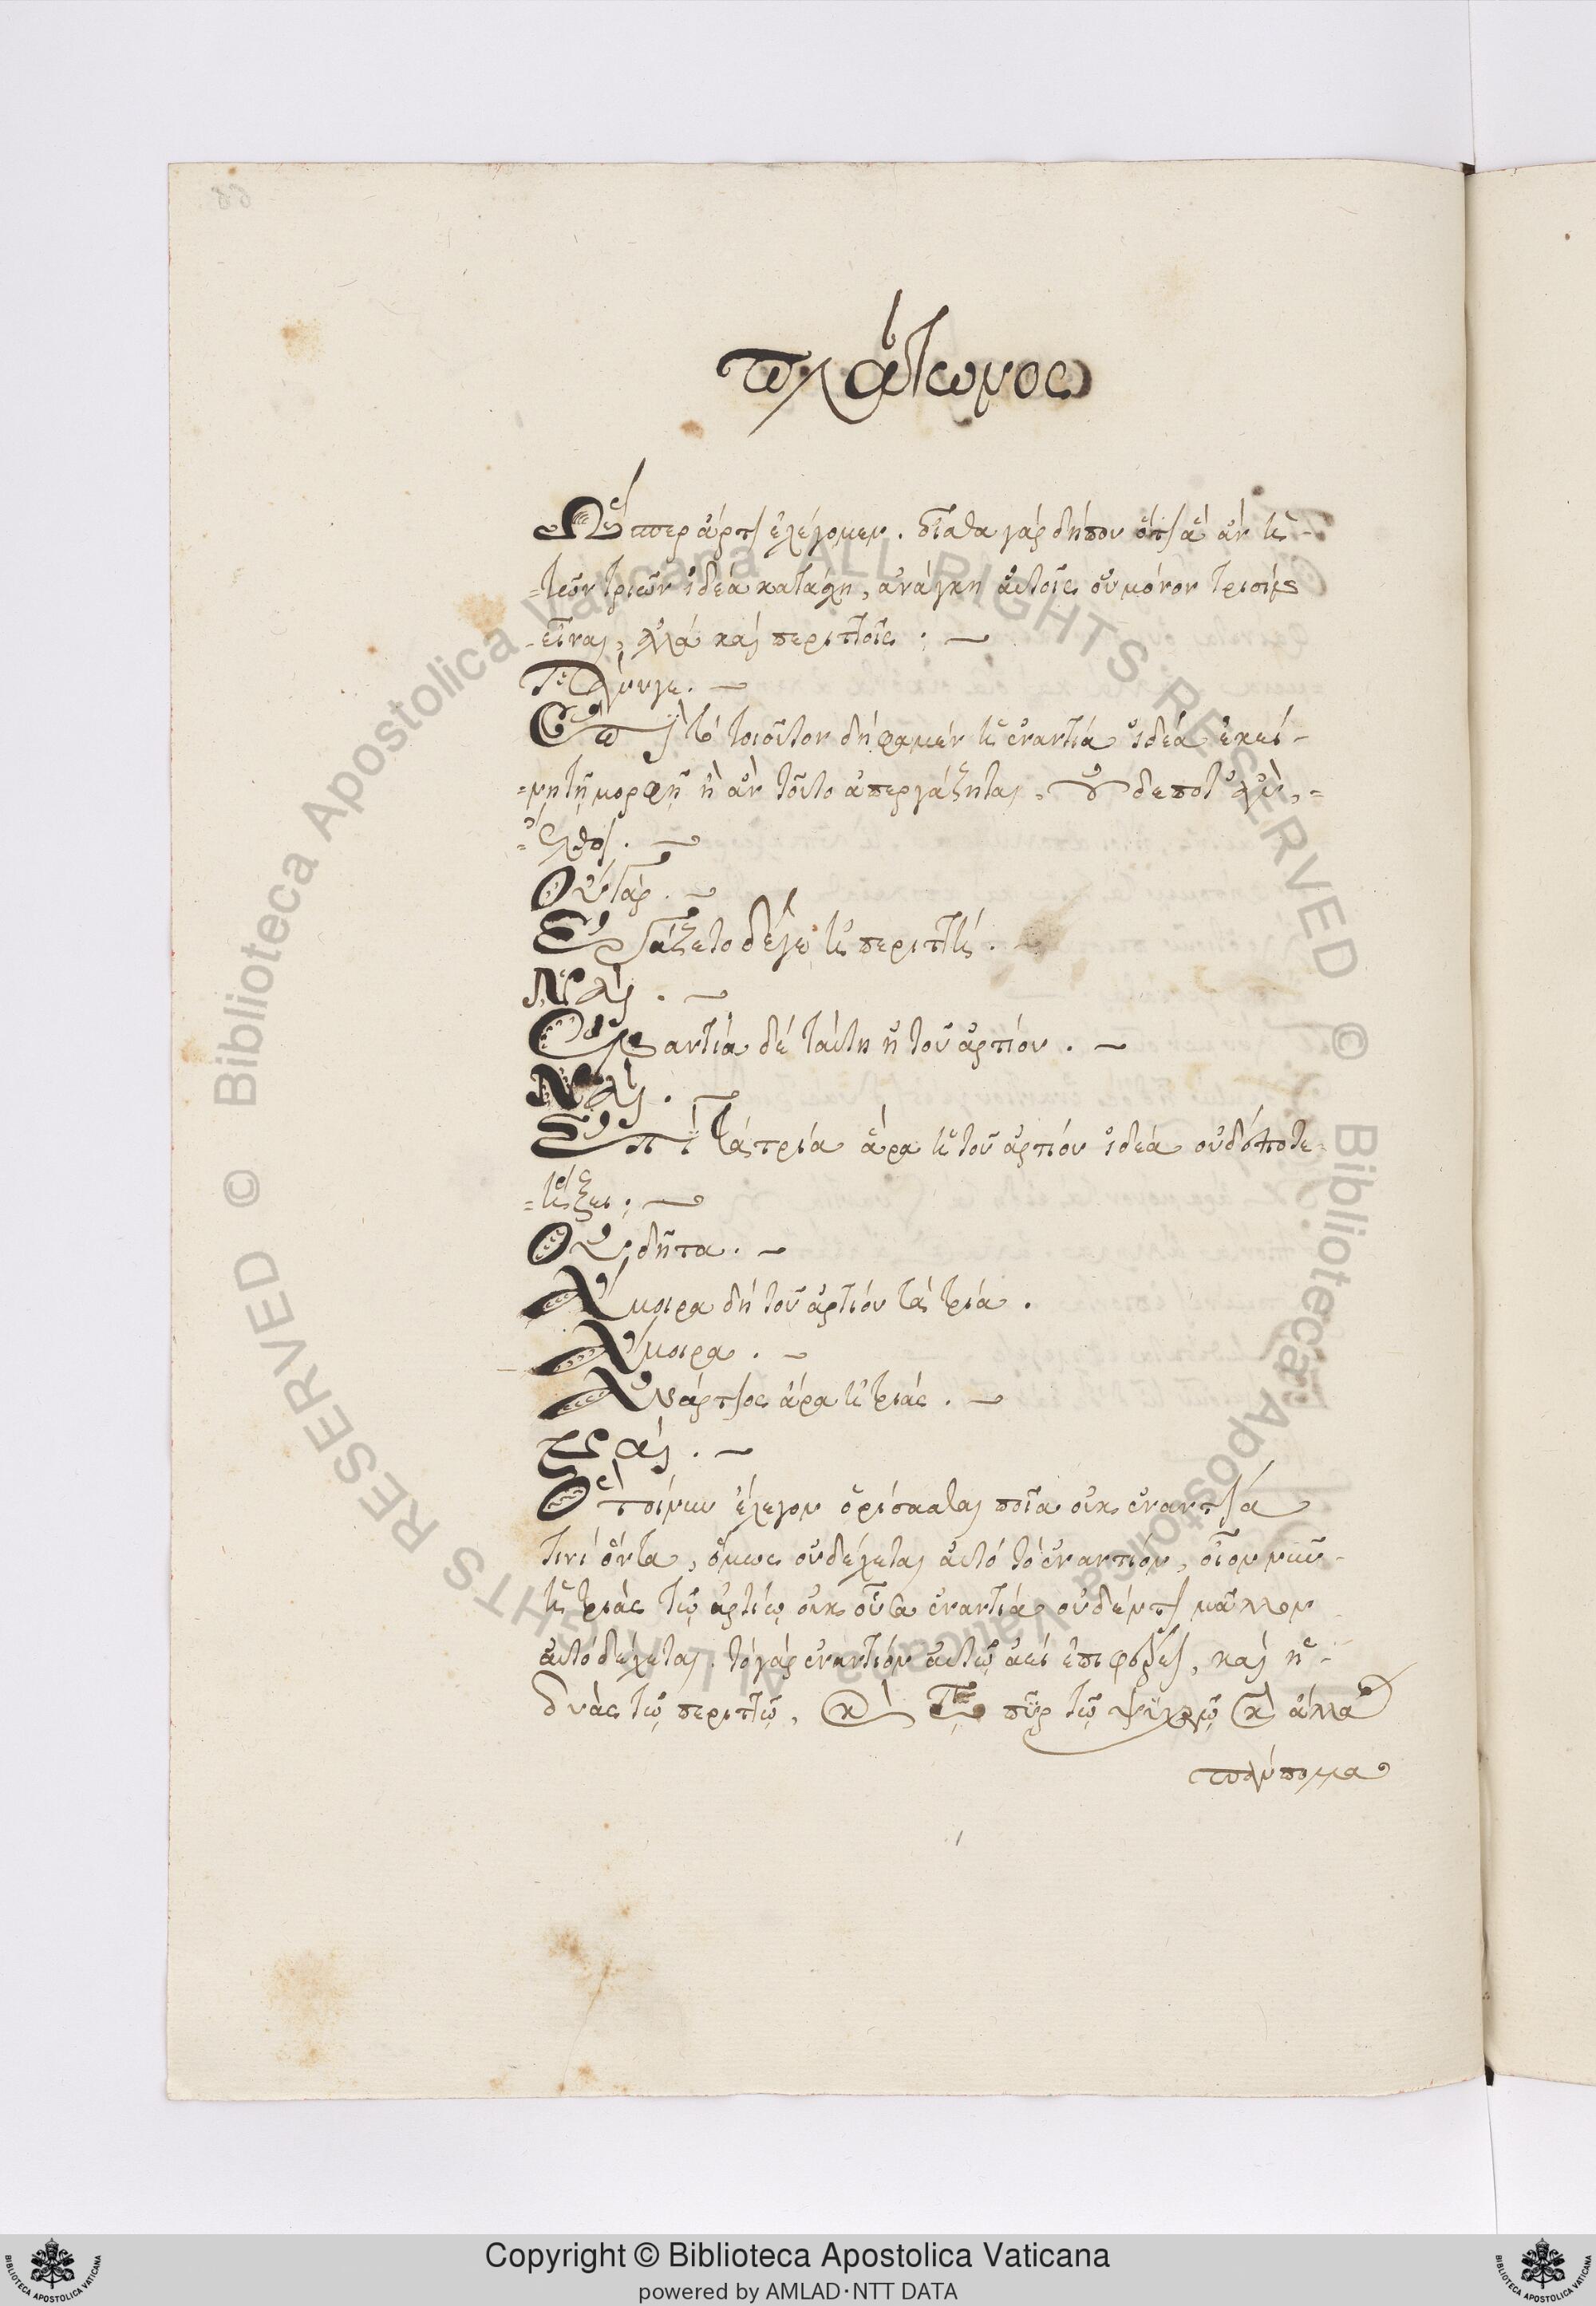 πλάτωνος
Ὥσπερ ἄρτι ἐλέγομεν. οἶσθα γάρ δήπου ὅτι ἃ ἂν ἡ
τῶν τριῶν ἰδέα κατάσχη, ἀνάγκη αὐτοῖς οὐ μόνον τρισὶν
εἶναι, ἀλλὰ καὶ περιττοῖς; ~
Πάνυγε. ~
Ἐπὶ τὸ τοιοῦτον δή φαμέν ἡ ἐναντία ἰδέα ἐκεί-
νη τῇ μορφῇ ἣ ἂν τοῦτο ἀπεργάζηται, οὐδέποτ' ἂν
ἔλθοι. ~
Οὐ γάρ. ~
Εἰργάζετο δέ γε ἡ περιττή.
Ναί. ~
Ἐναντία δὲ ταύτη ἡ τοῦ ἀρτίου. ~
Ναί. ~
Ἐπὶ τὰ τρία ἄρα ἡ τοῦ ἀρτίου ἰδέα οὐδέποτε
ἥξει; ~
Οὐ δῆτα. ~
Ἄμοιρα δὴ τοῦ ἀρτίου τὰ τρία.
Ἄμοιρα. ~
Ἀνάρτιος ἄρα ἡ τριάς. ~
Ναί. ~
Ὃ τοίνυν ἔλεγον ὁρίσασθαι ποῖα οὐκ ἐναντία
τινὶ ὄντα, ὅμως οὐ δέχεται αὐτὸ τὸ ἐναντίον, οἷον νῦν
ἡ τριὰς τῷ ἀρτίῳ οὐκ οὖσα ἐναντία οὐδέν τι μᾶλλον
αὐτὸ δέχεται. τὸ γὰρ ἐναντίον αὐτῷ ἀεὶ ἐπιφέρει, καὶ ἡ
δυὰς τῷ περιττῷ, καὶ τὸ πῦρ τῷ ψυχρῷ καὶ ἄλλα
πάμπολλα
Copyright © Biblioteca Apostolica Vaticana
powered by AMLAD·NTT DATA